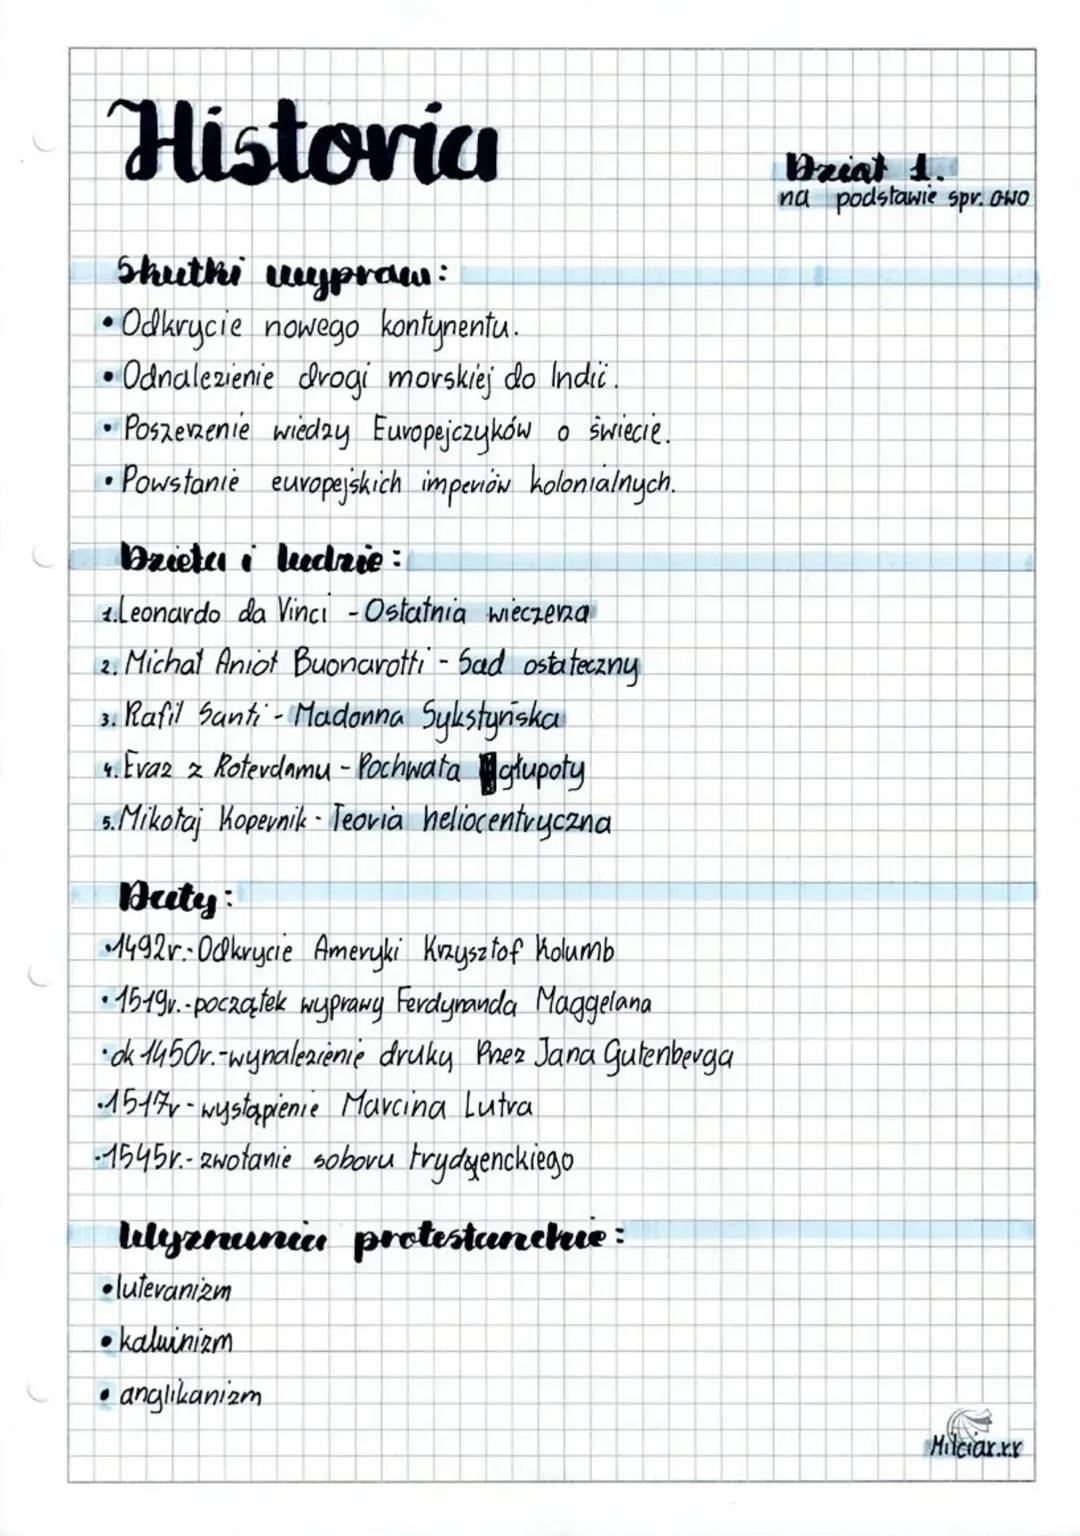 Historia
Dział 1.
na podstawie spr. GWO
Skutki wypraw:
• Odkrycie nowego kontynentu.
• Odnalezienie drogi morskiej do Indii.
• Poszerzenie wiedzy Europejczyków o świecie.
• Powstanie europejskich imperiów kolonialnych.
Dzieła i ludzie:
1. Leonardo da Vinci - Ostatnia wieczerza
2. Michał Anioł Buonarotti - Sad ostateczny
3. Rafil Santi - Madonna Sykstyńska
4. Eraz z Roterdamu - Pochwała głupoty
5. Mikołaj Kopernik - Teoria heliocentryczna
Daty:
• 1492r. - Odkrycie Ameryki Krzysztof Kolumb
• 1519r. - początek wyprawy Ferdynanda Maggelana
• ok 1450r. - wynalezienie druku Przez Jana Gutenberga
• 1517r - wystąpienie Marcina Lutra
• 1545r. - zwołanie soboru trydyenckiego
Wyznania protestanckie:
• luteranizm
• kalwinizm
• anglikanizm
Milciax.xx